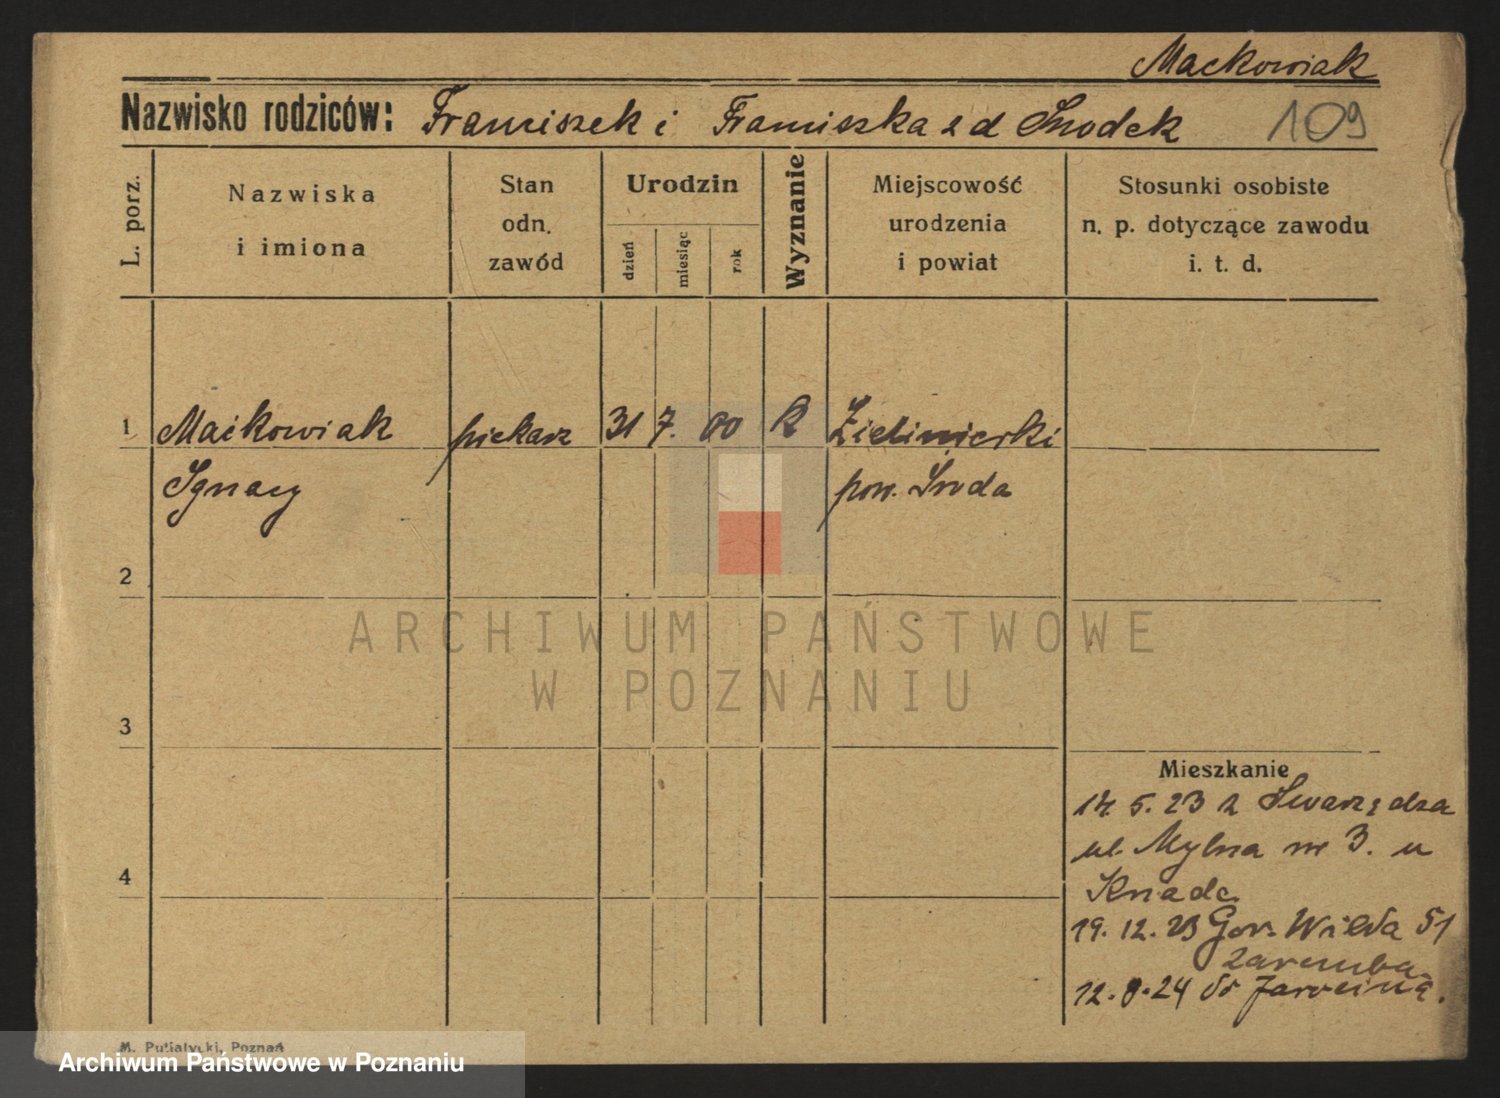 Mackowiak
Nazwisko rodziców: Franciszek i Franciszka z d Snodek 109
L. porz.
Nazwiska
i imiona
Stan
odn.
zawód
Urodzin
dzień
miesiąc
rok
Wyznanie
Miejscowość
urodzenia
i powiat
Stosunki osobiste
n. p. dotyczące zawodu
i. t. d.
1 Maćkowiak piekarz 31 7. 00 k
Ignacy pow. Środa
2
ARCHIWUM PAŃSTWOWE
W POZNANIU
3
Mieszkanie
17. 5. 23 z Swarzędza
ul. Mylna nr 3. u
4
Knade
19. 12. 23 Gór. Wilda 51
Zaremba
12. 8. 24 do Jarocina.
M. Putiatycki, Poznań
Archiwum Państwowe w Poznaniu